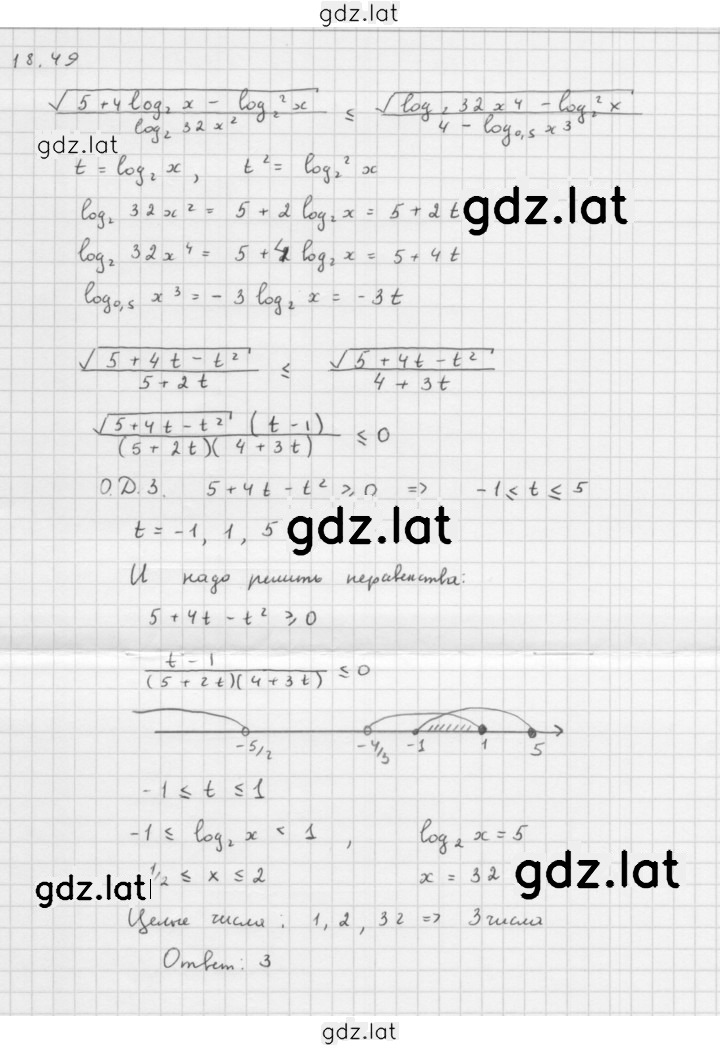 gdz.lat
18.49
√(5 + 4 log₂ x − log₂² x) / log₂ 32x² ≤ √(log₂ 32x⁴ − log₂² x) / (4 − log₀,₅ x³)
gdz.lat
t = log₂ x, t² = log₂² x
log₂ 32x² = 5 + 2 log₂ x = 5 + 2t
gdz.lat
log₂ 32x⁴ = 5 + 4 log₂ x = 5 + 4t
log₀,₅ x³ = − 3 log₂ x = −3t
√(5 + 4t − t²) / (5 + 2t) ≤ √(5 + 4t − t²) / (4 + 3t)
√(5 + 4t − t²) (t − 1) / ((5 + 2t)(4 + 3t)) ≤ 0
О.Д.З. 5 + 4t − t² ⩾ 0 => −1 ≤ t ≤ 5
t = −1, 1, 5
gdz.lat
И надо решить неравенства:
5 + 4t − t² ⩾ 0
(t − 1) / ((5 + 2t)(4 + 3t)) ≤ 0
−5/2 −4/3 −1 1 5
−1 ≤ t ≤ 1
−1 ≤ log₂ x < 1, log₂ x = 5
gdz.lat
1/2 ≤ x ≤ 2 x = 32
gdz.lat
Целые числа: 1, 2, 32 => 3 числа
Ответ: 3
gdz.lat